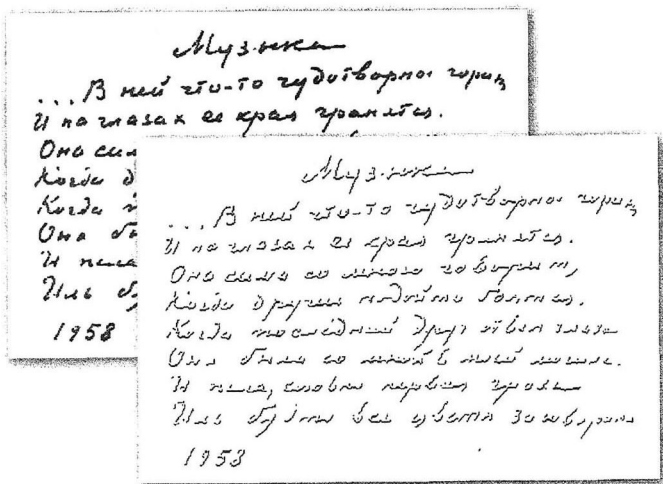 Музыка
...В ней что-то чудотворное горит
И на глазах ее края гранятся.
Она сам
Когда д
Когда
Она бы
И пела
Иль бу
1958
Музыка
...В ней что-то чудотворное горит
И на глазах ее края гранятся.
Она сама со мною говорит,
Когда другие подойти боятся.
Когда последний друг отвел глаза
Она была со мной в моей могиле.
И пела, словно первая гроза
Иль будто все цветы заговорили
1958